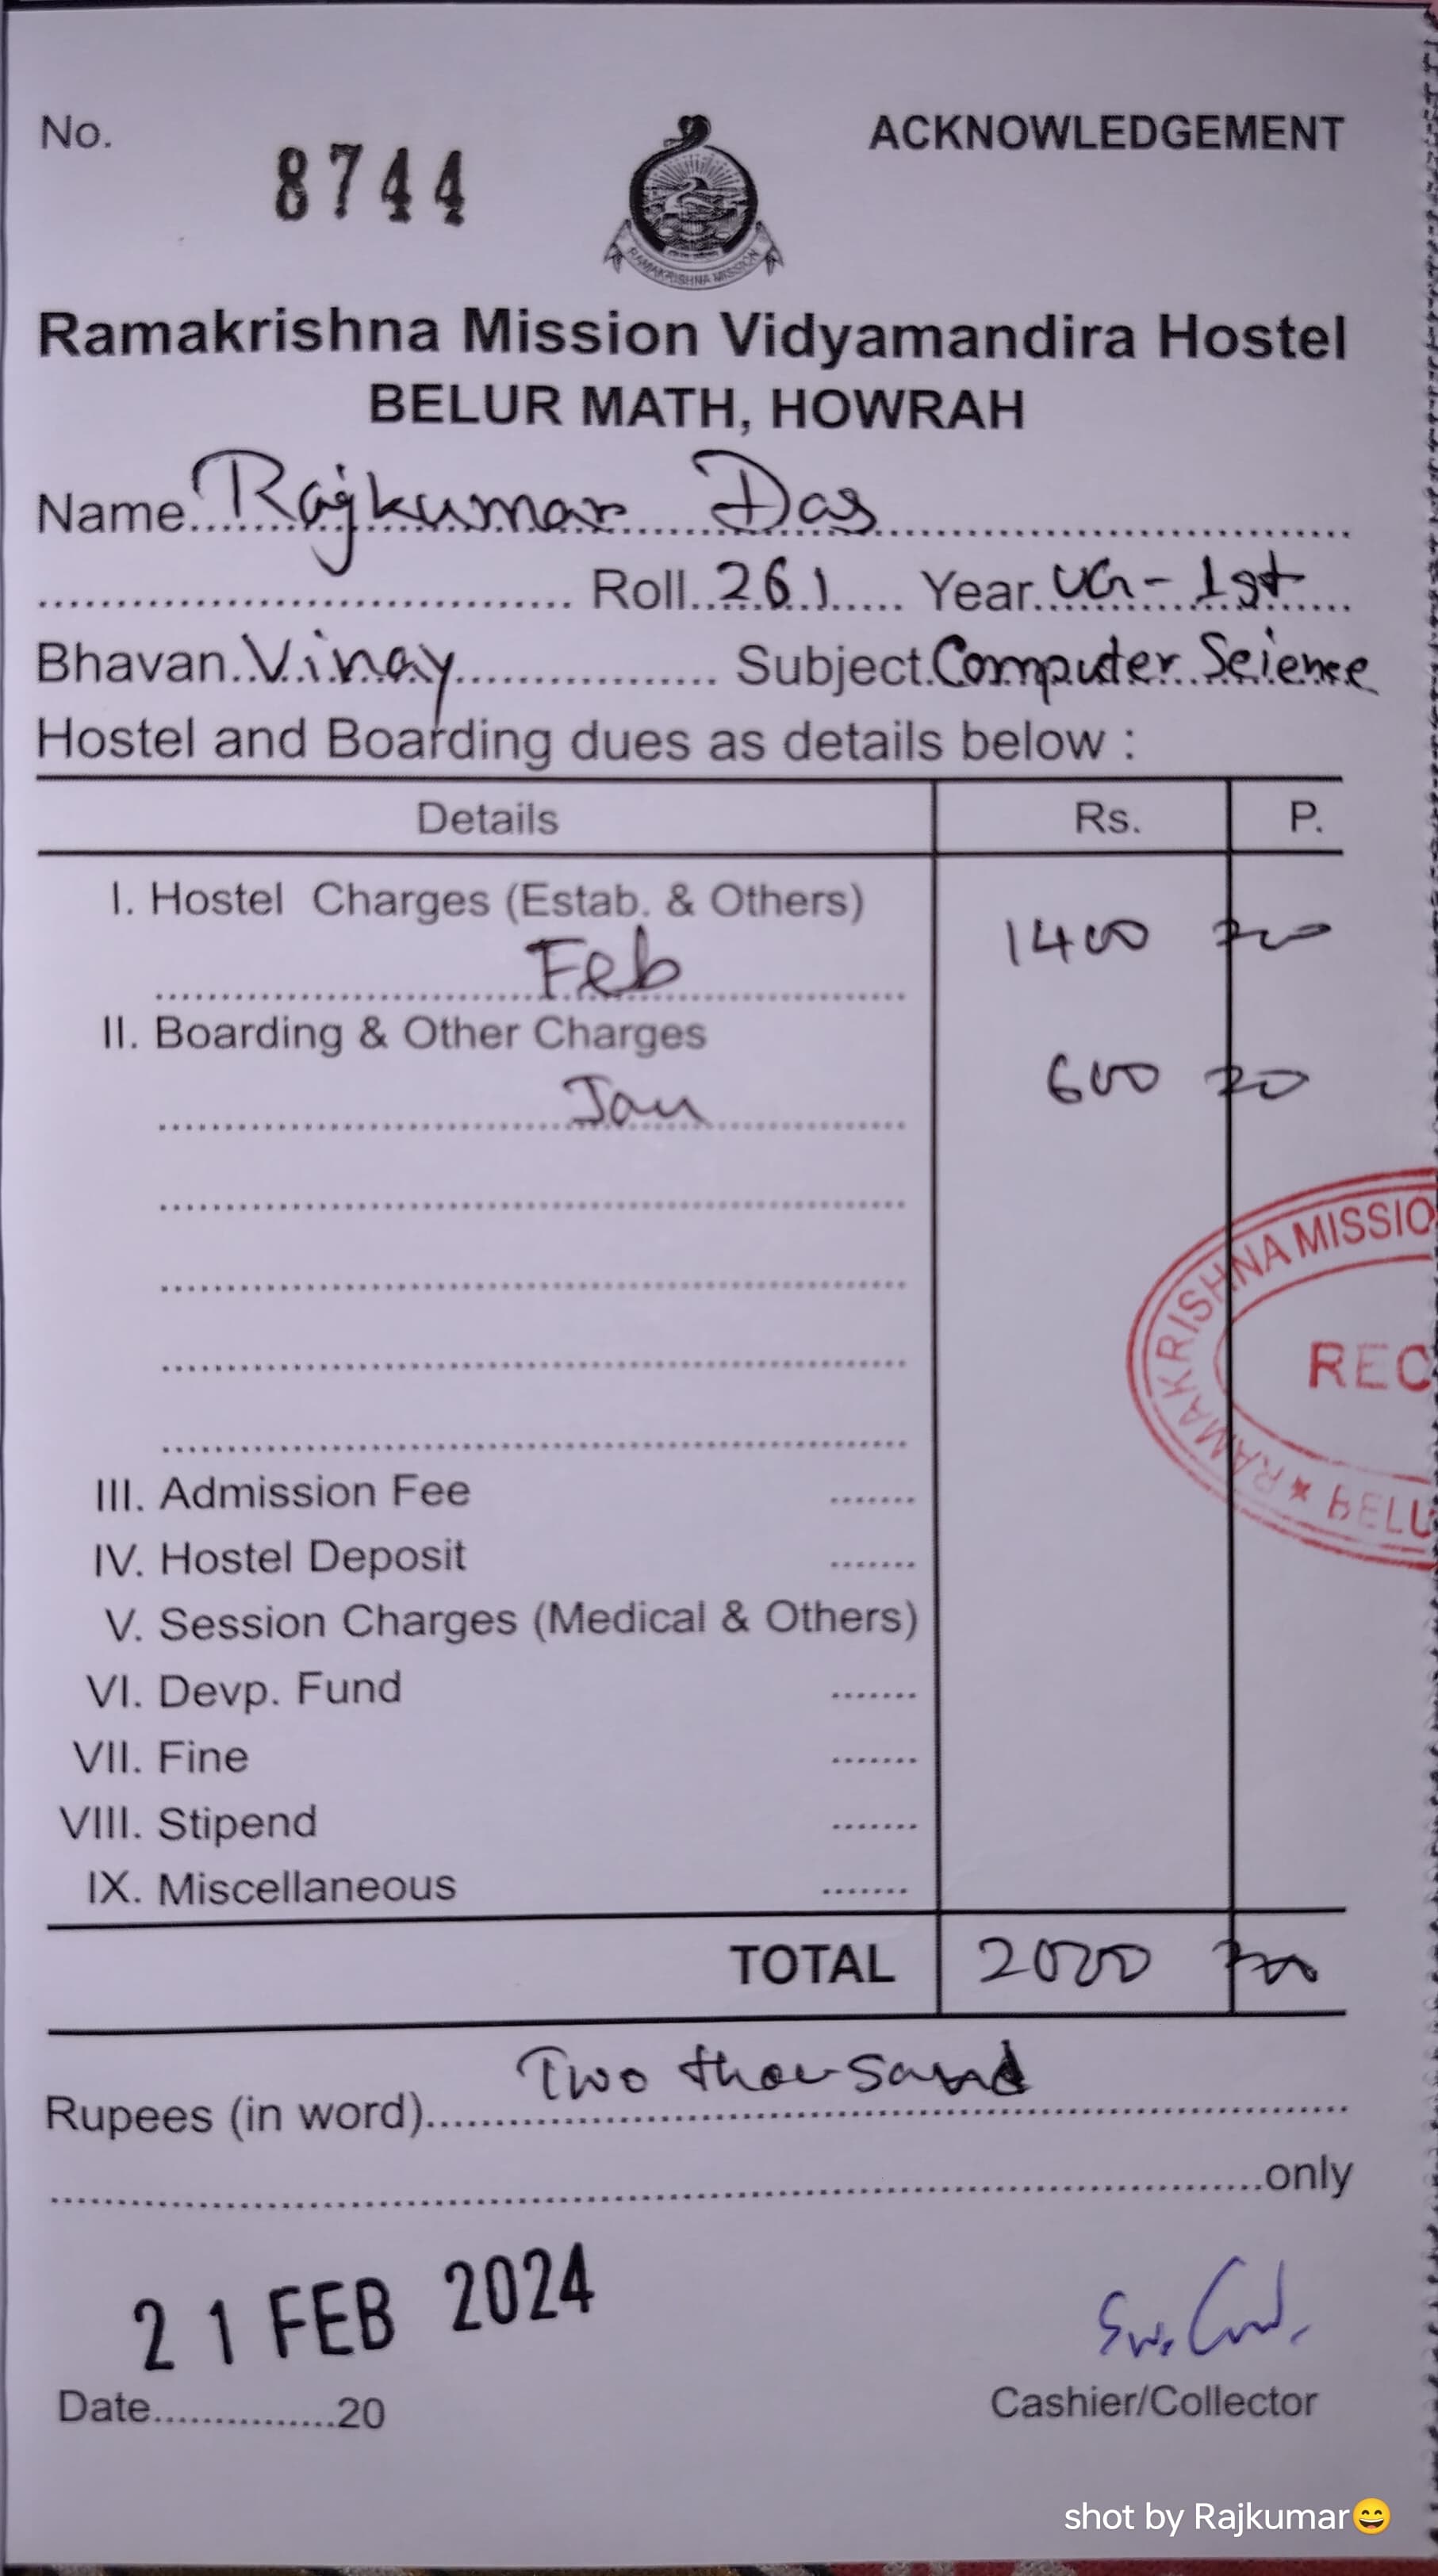 No. 8744 ACKNOWLEDGEMENT
RAMAKRISHNA MISSION
Ramakrishna Mission Vidyamandira Hostel
BELUR MATH, HOWRAH
Name Rajkumar Das
Roll 261 Year UG-1st
Bhavan Vinay Subject Computer Science
Hostel and Boarding dues as details below :
Details Rs. P.
I. Hostel Charges (Estab. & Others) 1400
Feb
II. Boarding & Other Charges 600
Jan
RAMAKRISHNA MISSIO
REC
BELU
III. Admission Fee .......
IV. Hostel Deposit .......
V. Session Charges (Medical & Others)
VI. Devp. Fund .......
VII. Fine .......
VIII. Stipend .......
IX. Miscellaneous .......
TOTAL 2000
Rupees (in word) Two thousand
only
21 FEB 2024
Date...............20 Cashier/Collector
shot by Rajkumar😄